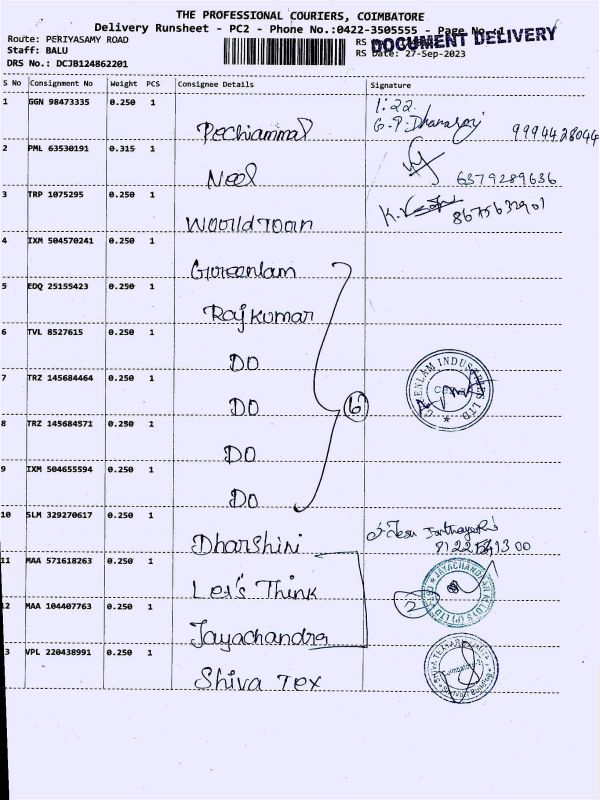 THE PROFESSIONAL COURIERS, COIMBATORE
Delivery Runsheet - PC2 - Phone No.:0422-3505555 - Page No.:1
Route: PERIYASAMY ROAD
Staff: BALU
DRS No.: DCJB124862201
RS
DOCUMENT DELIVERY
RS Date: 27-Sep-2023
S No Consignment No Weight PCS Consignee Details Signature
1 GGN 98473335 0.250 1 Pechiammal 1:22
G.P. Dhanaraj 9994428044
2 PML 63530191 0.315 1 Neel 6379289636
3 TRP 1075295 0.250 1 Woorldtoon K. 8675632901
4 IXM 504570241 0.250 1 Greenlam
5 EDQ 25155423 0.250 1 Rajkumar
6 TVL 8527615 0.250 1 DO
7 TRZ 145684464 0.250 1 DO 6
8 TRZ 145684571 0.250 1 DO
9 IXM 504655594 0.250 1 DO
GREENLAM INDUSTRIES LTD
10 SLM 329270617 0.250 1 Dharshini
11 MAA 571618263 0.250 1 Let's Think
12 MAA 104407763 0.250 1 Jayachandra 2
3 VPL 220438991 0.250 1 Shiva Tex